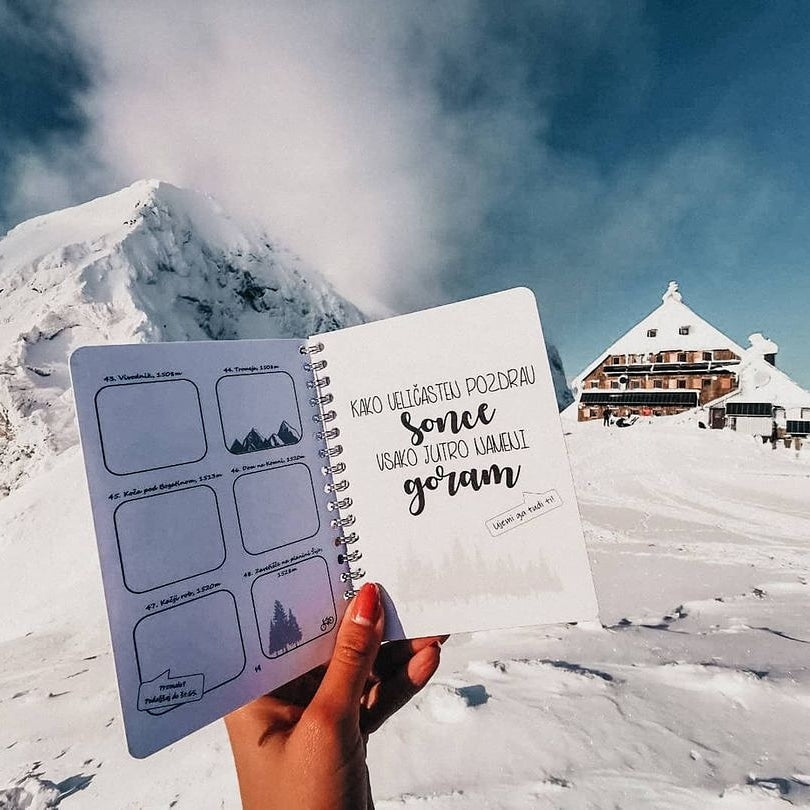 43. Virednik, 1508m
44. Tromeja, 1508m
45. Koča pod Bogatinom, 1513m
46. Dom na Komni, 1520m
47. Kozji rob, 1520m
48. Zavetišče na planini
1528m
Trivudo?
Podaljšaj do št. 65.
14
KAKO VELIČASTEN POZDRAV
sonce
VSAKO JUTRO NAMENI
goram
Ujemi ga tudi ti!